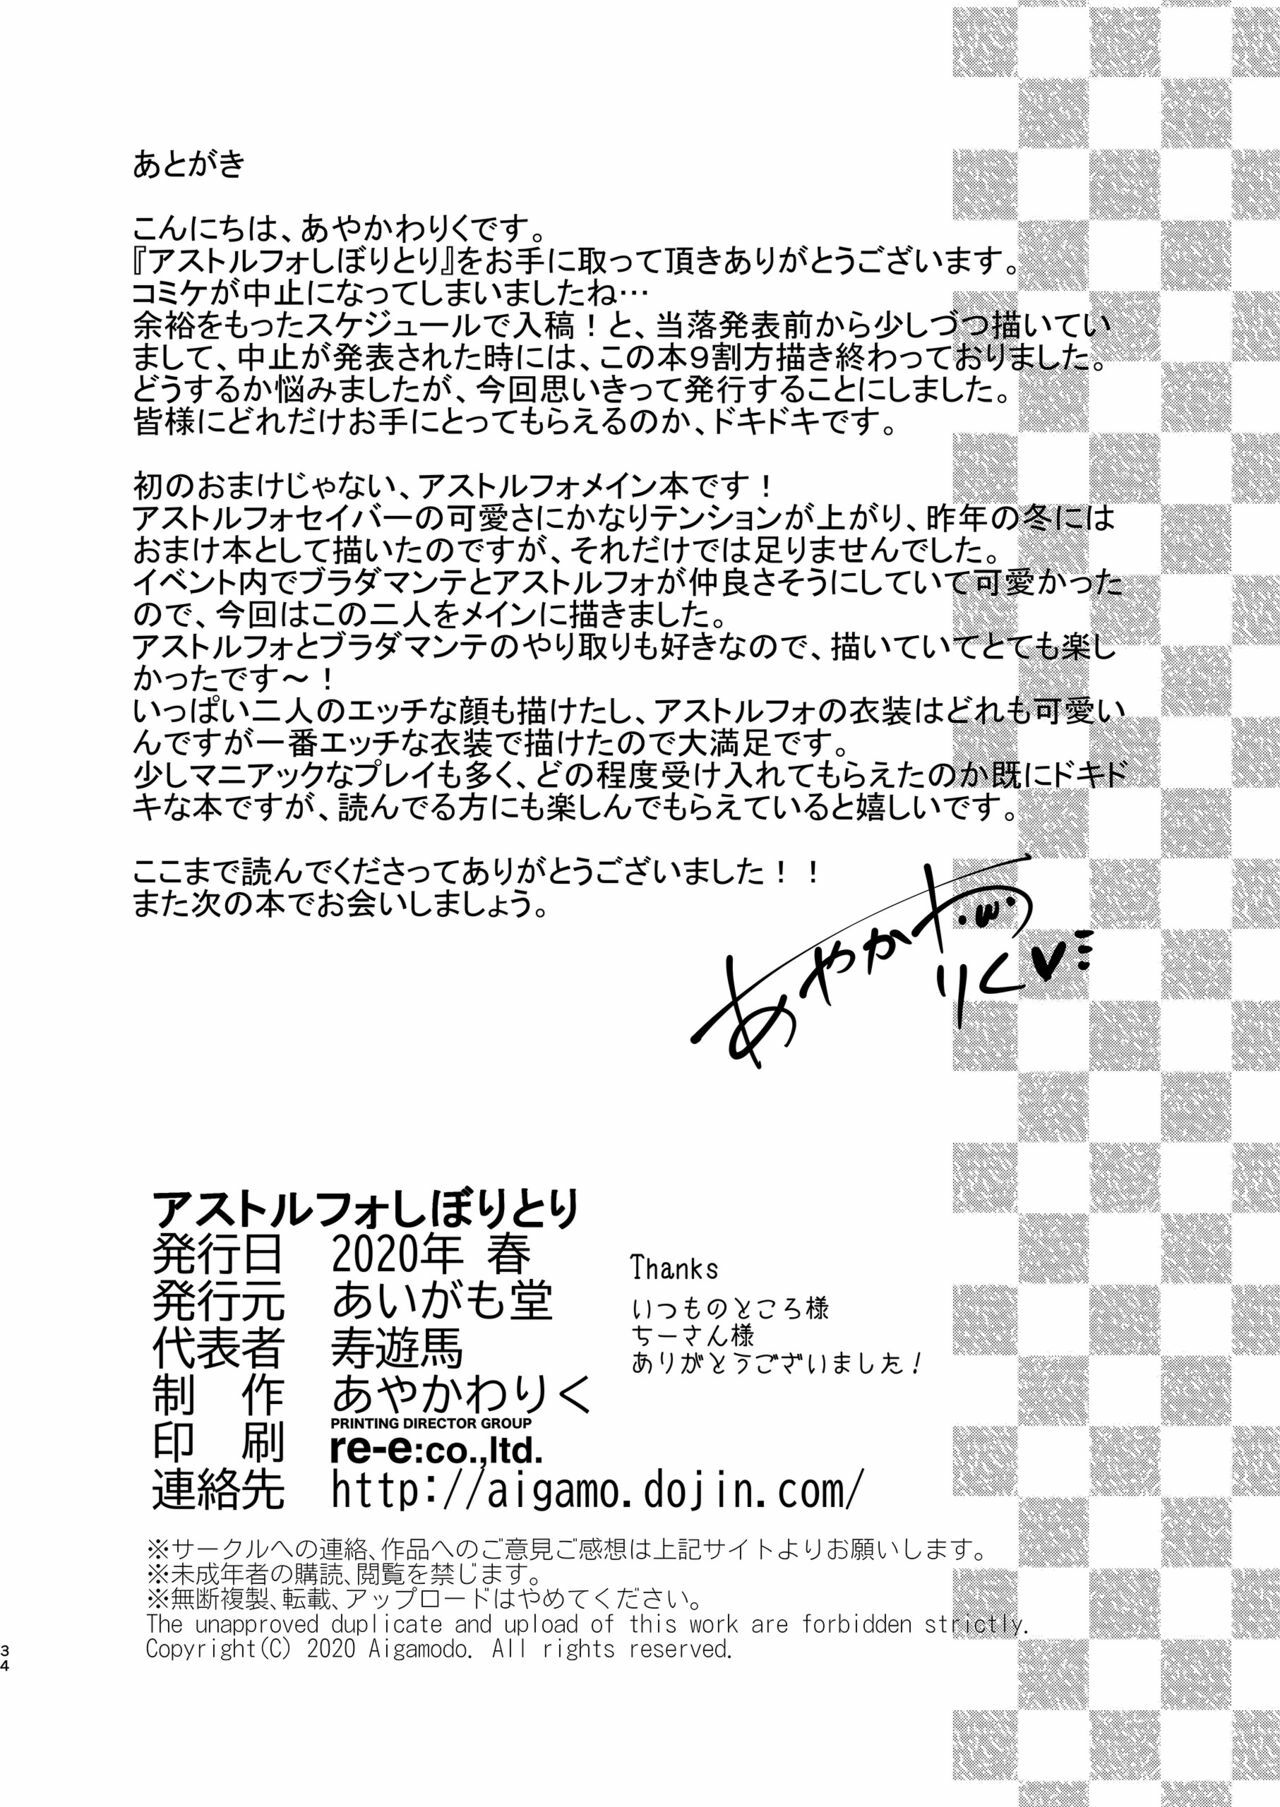 あとがき
こんにちは、あやかわりくです。
『アストルフォしぼりとり』をお手に取って頂きありがとうございます。
コミケが中止になってしまいましたね…
余裕をもったスケジュールで入稿！と、当落発表前から少しづつ描いてい
まして、中止が発表された時には、この本９割方描き終わっておりました。
どうするか悩みましたが、今回思いきって発行することにしました。
皆様にどれだけお手にとってもらえるのか、ドキドキです。
初のおまけじゃない、アストルフォメイン本です！
アストルフォセイバーの可愛さにかなりテンションが上がり、昨年の冬には
おまけ本として描いたのですが、それだけでは足りませんでした。
イベント内でブラダマンテとアストルフォが仲良さそうにしていて可愛かった
ので、今回はこの二人をメインに描きました。
アストルフォとブラダマンテのやり取りも好きなので、描いていてとても楽し
かったです～！
いっぱい二人のエッチな顔も描けたし、アストルフォの衣装はどれも可愛い
んですが一番エッチな衣装で描けたので大満足です。
少しマニアックなプレイも多く、どの程度受け入れてもらえたのか既にドキド
キな本ですが、読んでる方にも楽しんでもらえていると嬉しいです。
ここまで読んでくださってありがとうございました！！
また次の本でお会いしましょう。
あやかわ
りく
アストルフォしぼりとり
発行日 2020年 春
発行元 あいがも堂
代表者 寿遊馬
制　作 あやかわりく
PRINTING DIRECTOR GROUP
印　刷 re-e:co.,ltd.
連絡先 http://aigamo.dojin.com/
Thanks
いつものところ様
ちーさん様
ありがとうございました！
※サークルへの連絡、作品へのご意見ご感想は上記サイトよりお願いします。
※未成年者の購読、閲覧を禁じます。
※無断複製、転載、アップロードはやめてください。
The unapproved duplicate and upload of this work are forbidden strictly.
Copyright(C) 2020 Aigamodo. All rights reserved.
34